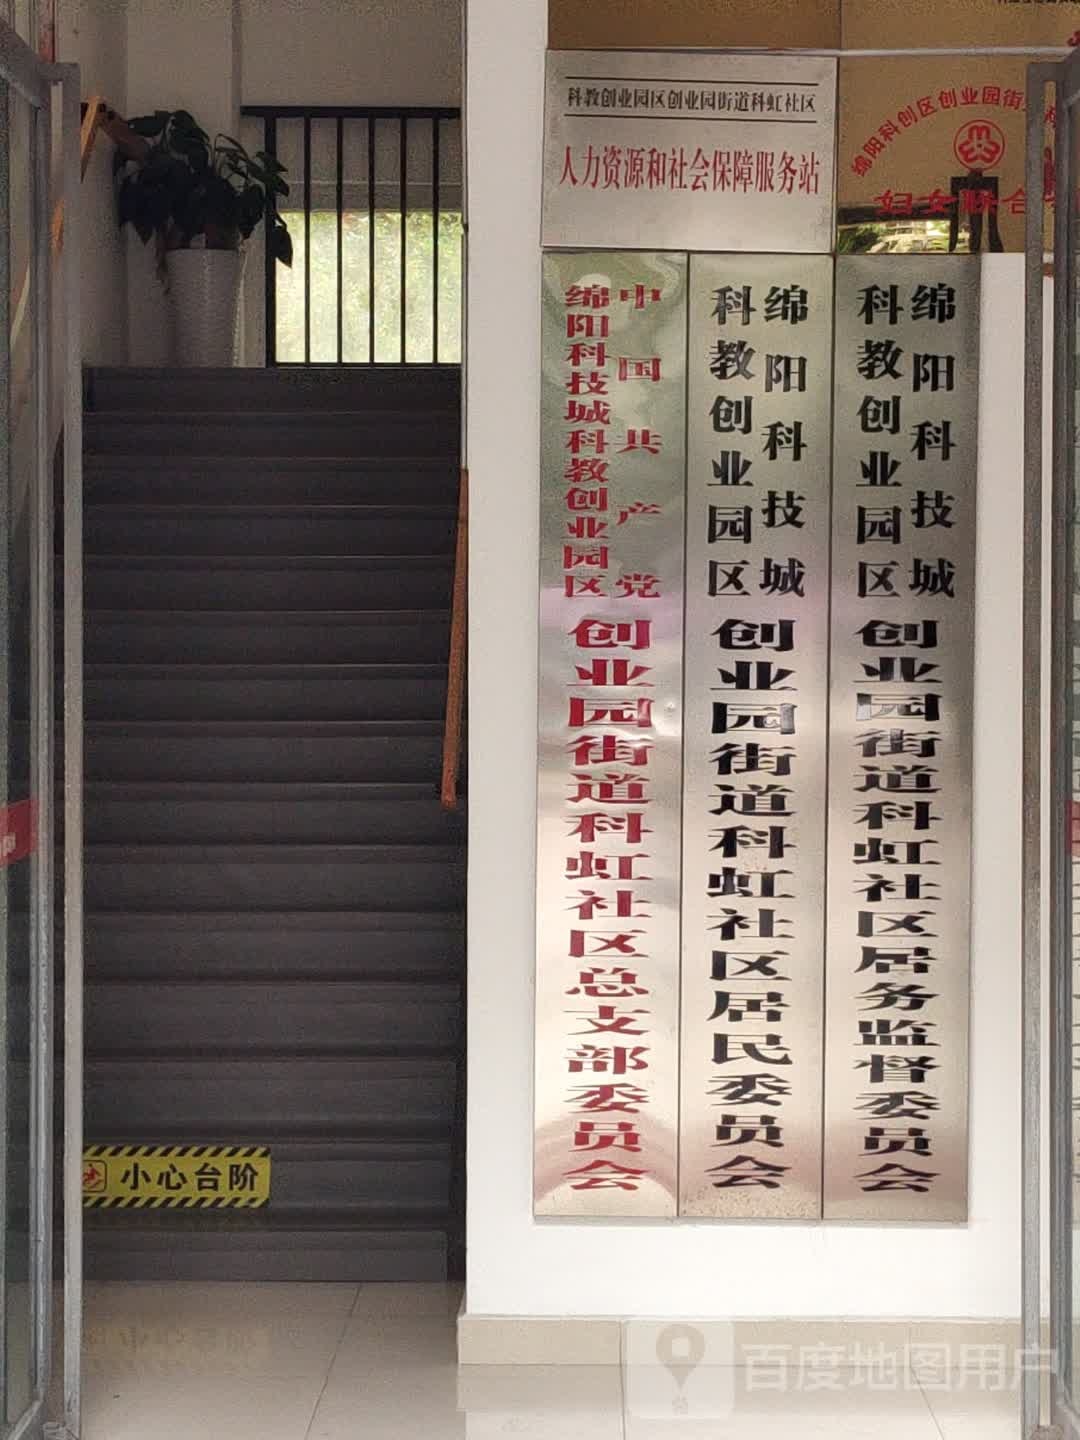 科教创业园区创业园街道科虹社区
人力资源和社会保障服务站
绵阳科创区创业园街
妇女联合
中国共产党
绵阳科技城科教创业园区
创业园街道科虹社区总支部委员会
绵阳科技城
科教创业园区
创业园街道科虹社区居民委员会
绵阳科技城
科教创业园区
创业园街道科虹社区居务监督委员会
小心台阶
百度地图用户